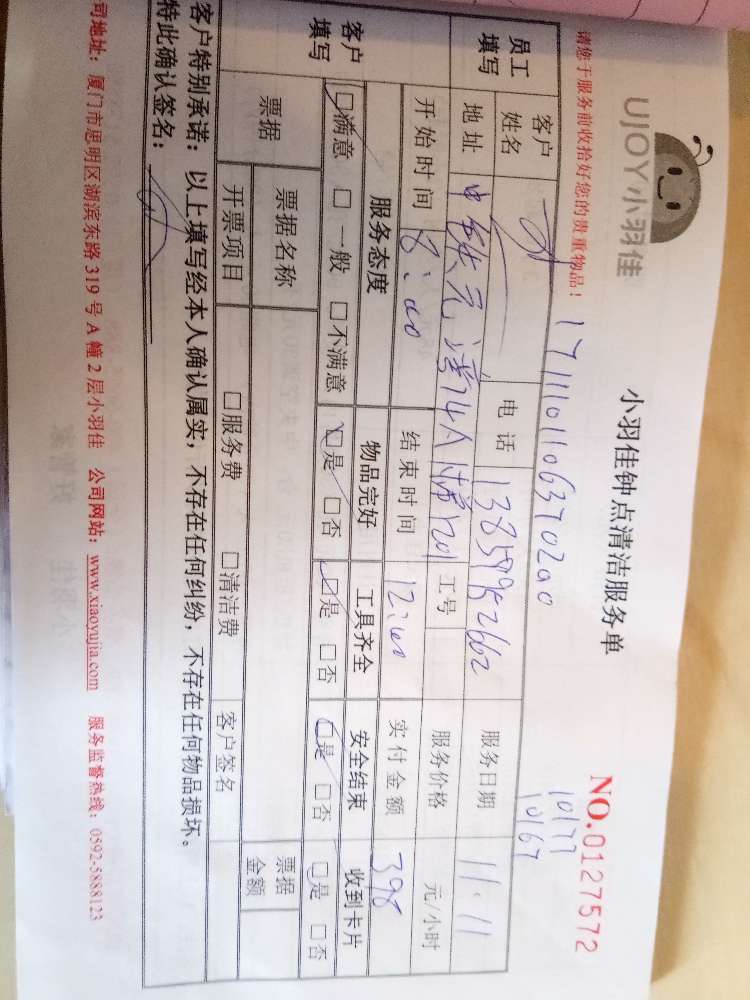 UJOY小羽佳
小羽佳钟点清洁服务单
NO.0127572
请您于服务前收拾好您的贵重物品！
10177
10167
员工填写
客户姓名
电话
服务日期 11.11
地址 中铁元湾
工号
服务价格 元/小时
开始时间 8:00
结束时间 12:00
实付金额 398
客户填写
服务态度 物品完好 工具齐全 安全结束 收到卡片
□满意 □一般 □不满意 □是 □否 □是 □否 □是 □否 □是 □否
票据
票据名称
票据金额
开票项目 □服务费 □清洁费 客户签名
客户特别承诺：以上填写经本人确认属实，不存在任何纠纷，不存在任何物品损坏。
特此确认签名：
司地址：厦门市思明区湖滨东路 319 号 A 幢 2 层小羽佳 公司网站：www.xiaoyujia.com 服务监督热线：0592-5888123